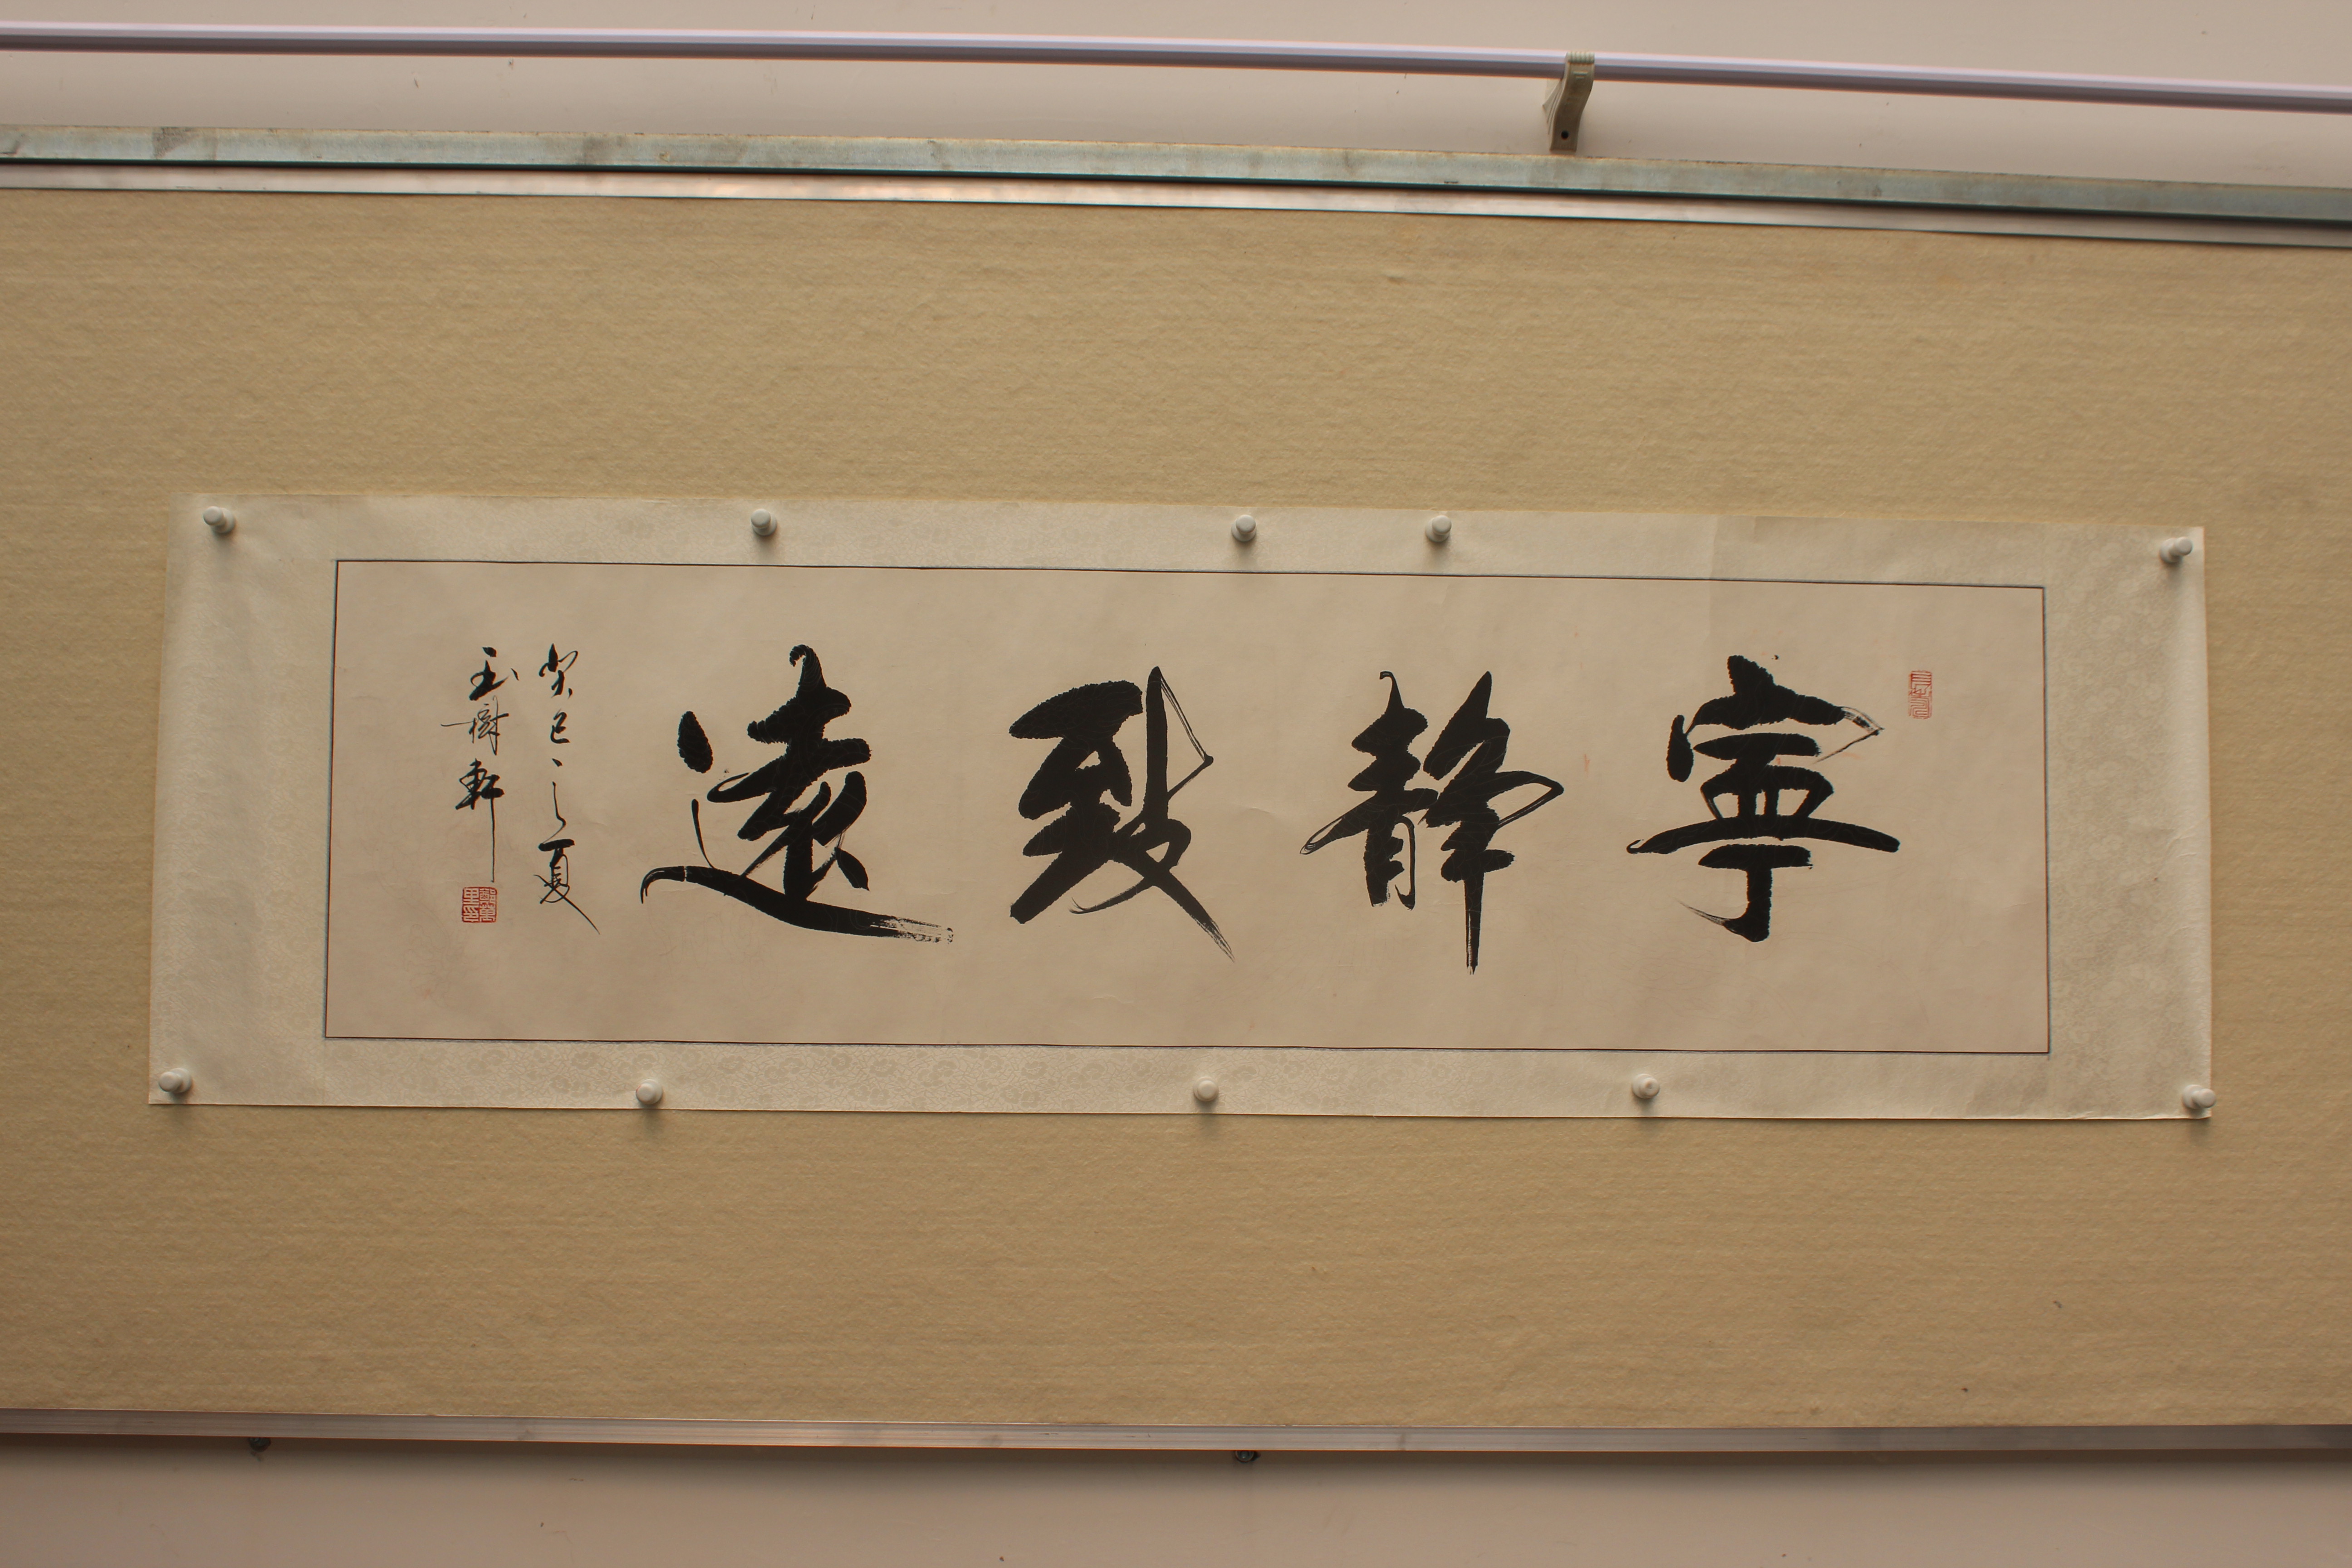 寧靜致遠
癸巳之夏
玉樹軒